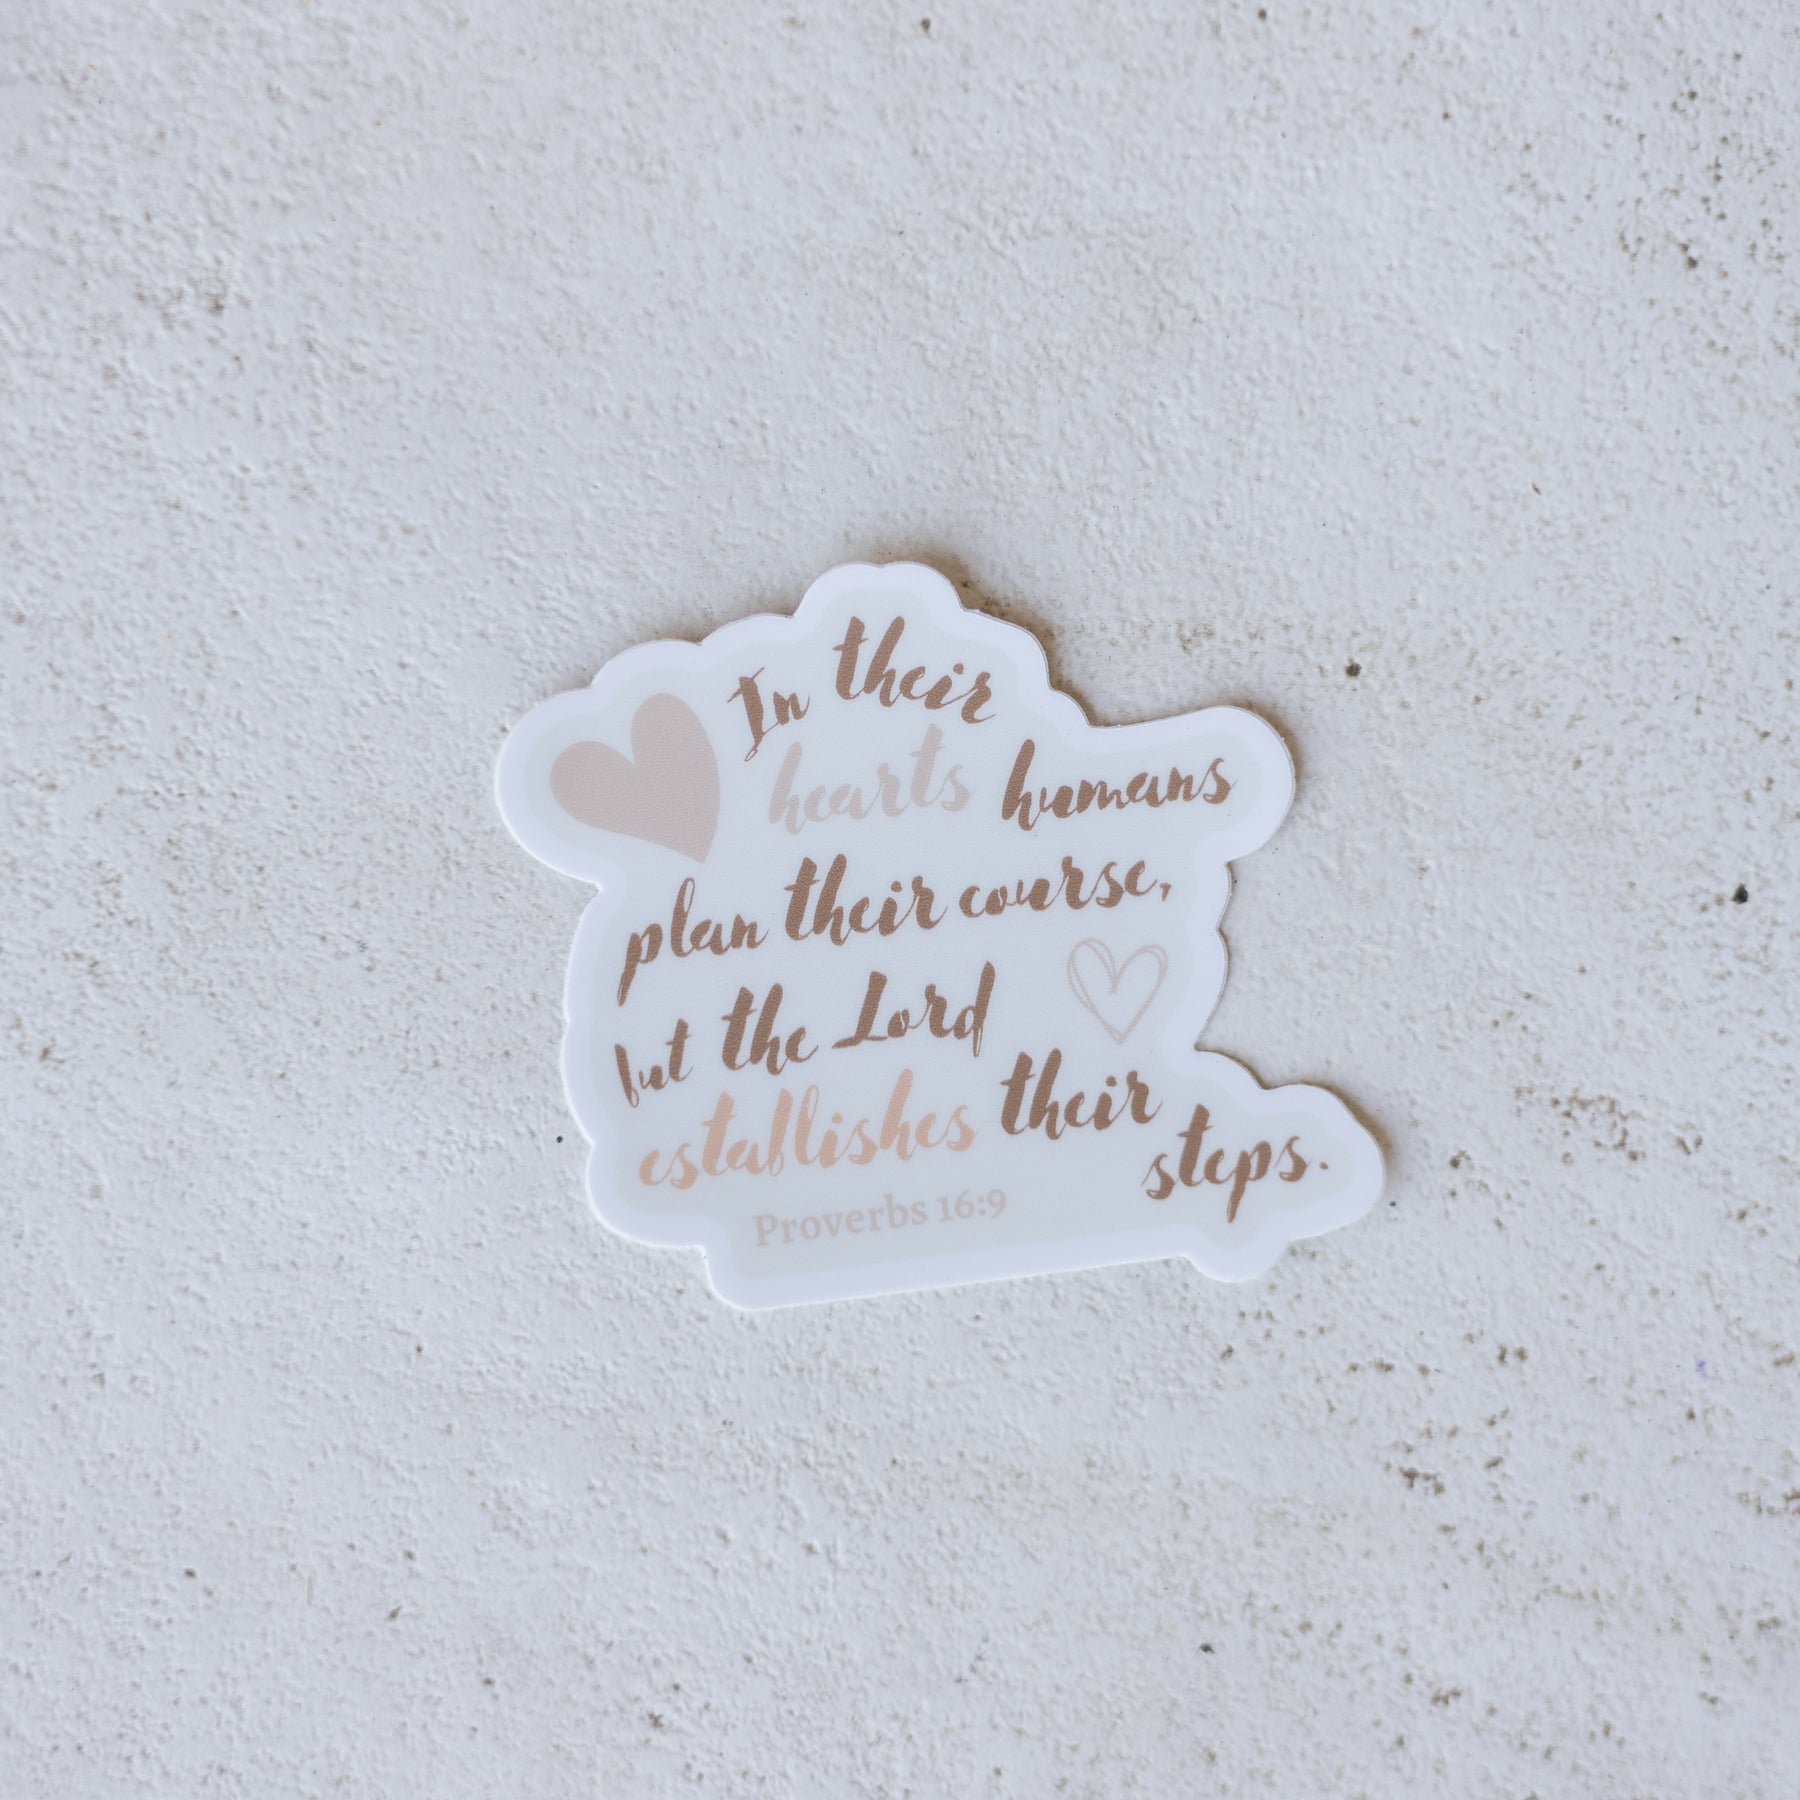 In their
hearts humans
plan their course,
but the Lord
establishes their
steps.
Proverbs 16:9